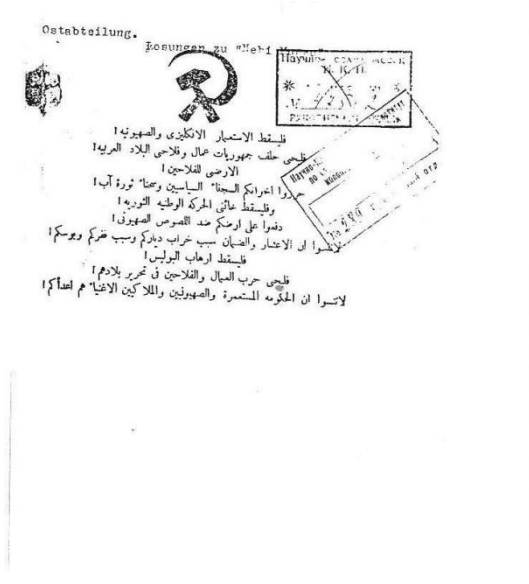 Ostabteilung.
Losungen zu "Nebi
فليسقط الاستعمار الانكليزى والصهيونيه!
فليحى حلف جمهوريات عمال وفلاحى البلاد العربيه!
الارضى للفلاحين!
حرروا اخوانكم السجناء السياسيين وسجناء ثورة آب!
وفليسقط خائنى الحركة الوطنيه الثوريه!
دفعوا على ارضكم ضد اللصوص الصهيونى!
لاتنسوا ان الاعشار والضمان سبب خراب دياركم وسبب فقركم وبوسكم!
فليسقط ارهاب البوليس!
فليحى حرب العمال والفلاحين فى تحرير بلادهم!
لاتنسوا ان الحكومه المستعمرة والصهيونيين والملاكيين الاغنياء هم اعدأكم!
И. К. П.